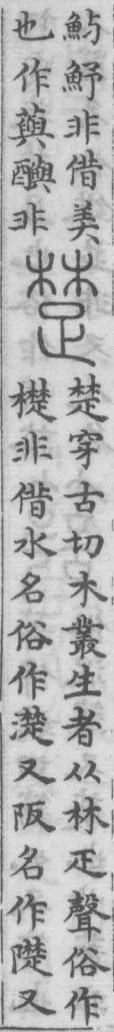 魣非借美
也作藇非
楚
楚穿古切木叢生者从林疋聲俗作
檚非借水名俗作濋又阪名作又